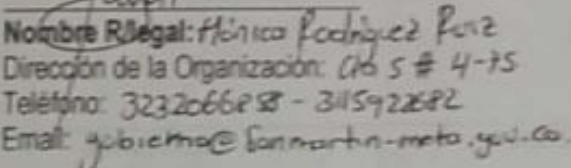 Nombre R/legal: Mónica Rodríguez Ruiz
Dirección de la Organización: 5 # 4-75
Teléfono: - 3115922682
Email: gobierno@sanmartin-meta.gov.co